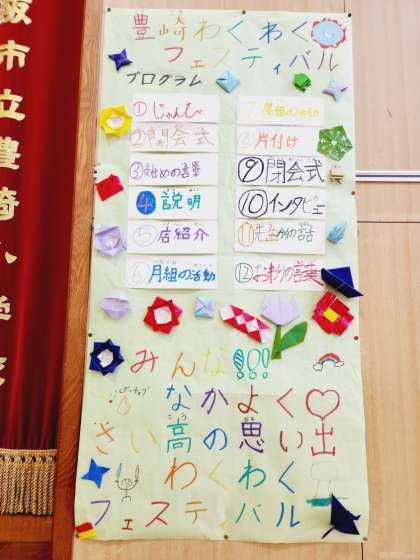 阪市立豊崎小学校
豊崎わくわく
フェスティバル
プログラム
①じゅんび
②開会式
③始めの言葉
④説明
⑤店紹介
⑥月組の活動
⑦星組の活動
⑧片付け
⑨閉会式
⑩インタビュー
⑪先生からの話
⑫おわりの言葉
みんな!!!
なかよく♡
さい高の思い出
わくわく
フェスティバル